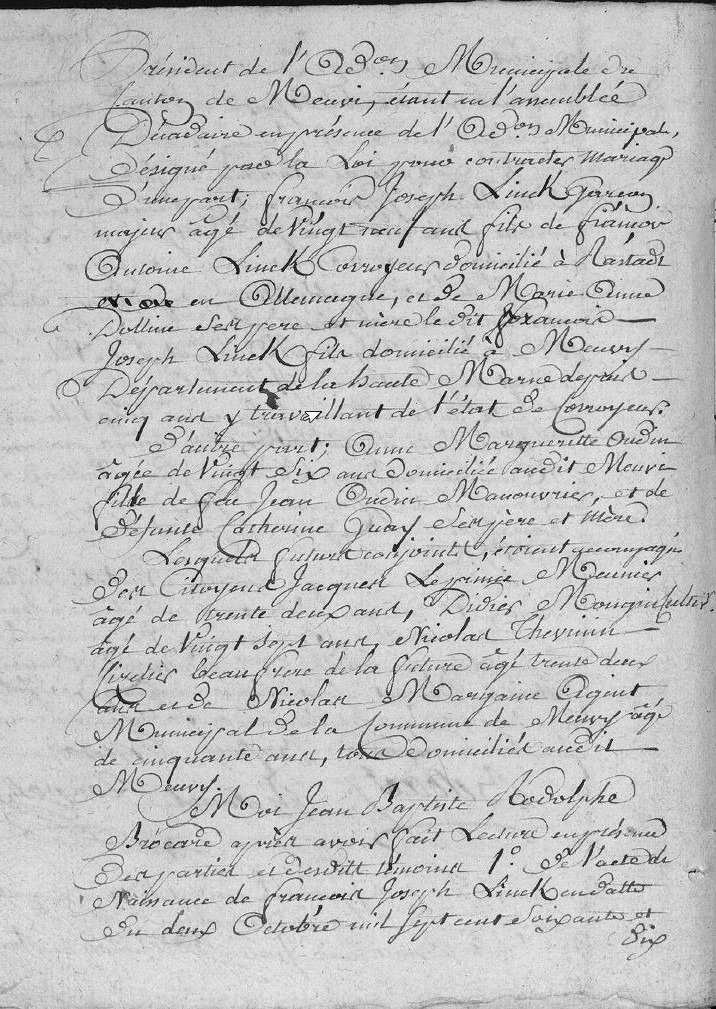 Président de l'Adon Municipale du
Canton de Meuvi, étant en l'assemblée
Décadaire en présence de l'Adon Municipale,
désigné par la Loi pour contracter mariage
D'une part; françois Joseph Linck Garçon
majeur âgé de vingt neuf ans fils de françois
Antoine Linck Corroyeur domicilié à Rastadt
en Allemagne, et de Marie Anne
Dolline ses père et mère le dit françois
Joseph Linck fils domicilié à Meuvy
Département de la haute Marne depuis
cinq ans y travaillant de l'état de Corroyeur.
D'autre part; Anne Margueritte Oudin
âgée de vingt six ans domiciliée audit Meuvi
fille de feu Jean Oudin Manouvrier, et de
Défunte Catherine Guay ses père et mère.
Lesquels futurs conjoints, étoient accompagné
des Citoyens Jacques Leprince Meunier
âgé de trente deux ans, Didier Mougin Cultivr.
âgé de vingt sept ans, Nicolas Thevenin
beau frere de la future âgé trente deux
ans et de Nicolas Margaine Agent
Municipal de la Commune de Meuvy âgé
de cinquante ans, tous domiciliés audit
Meuvy.
Moi Jean Baptiste Rodolphe
Brocard après avoir fait Lecture en présence
des parties et desdits témoins 1°. De l'acte de
Naissance de françois Joseph Linck en datte
du deux Octobre mil sept cent soixante et
dix